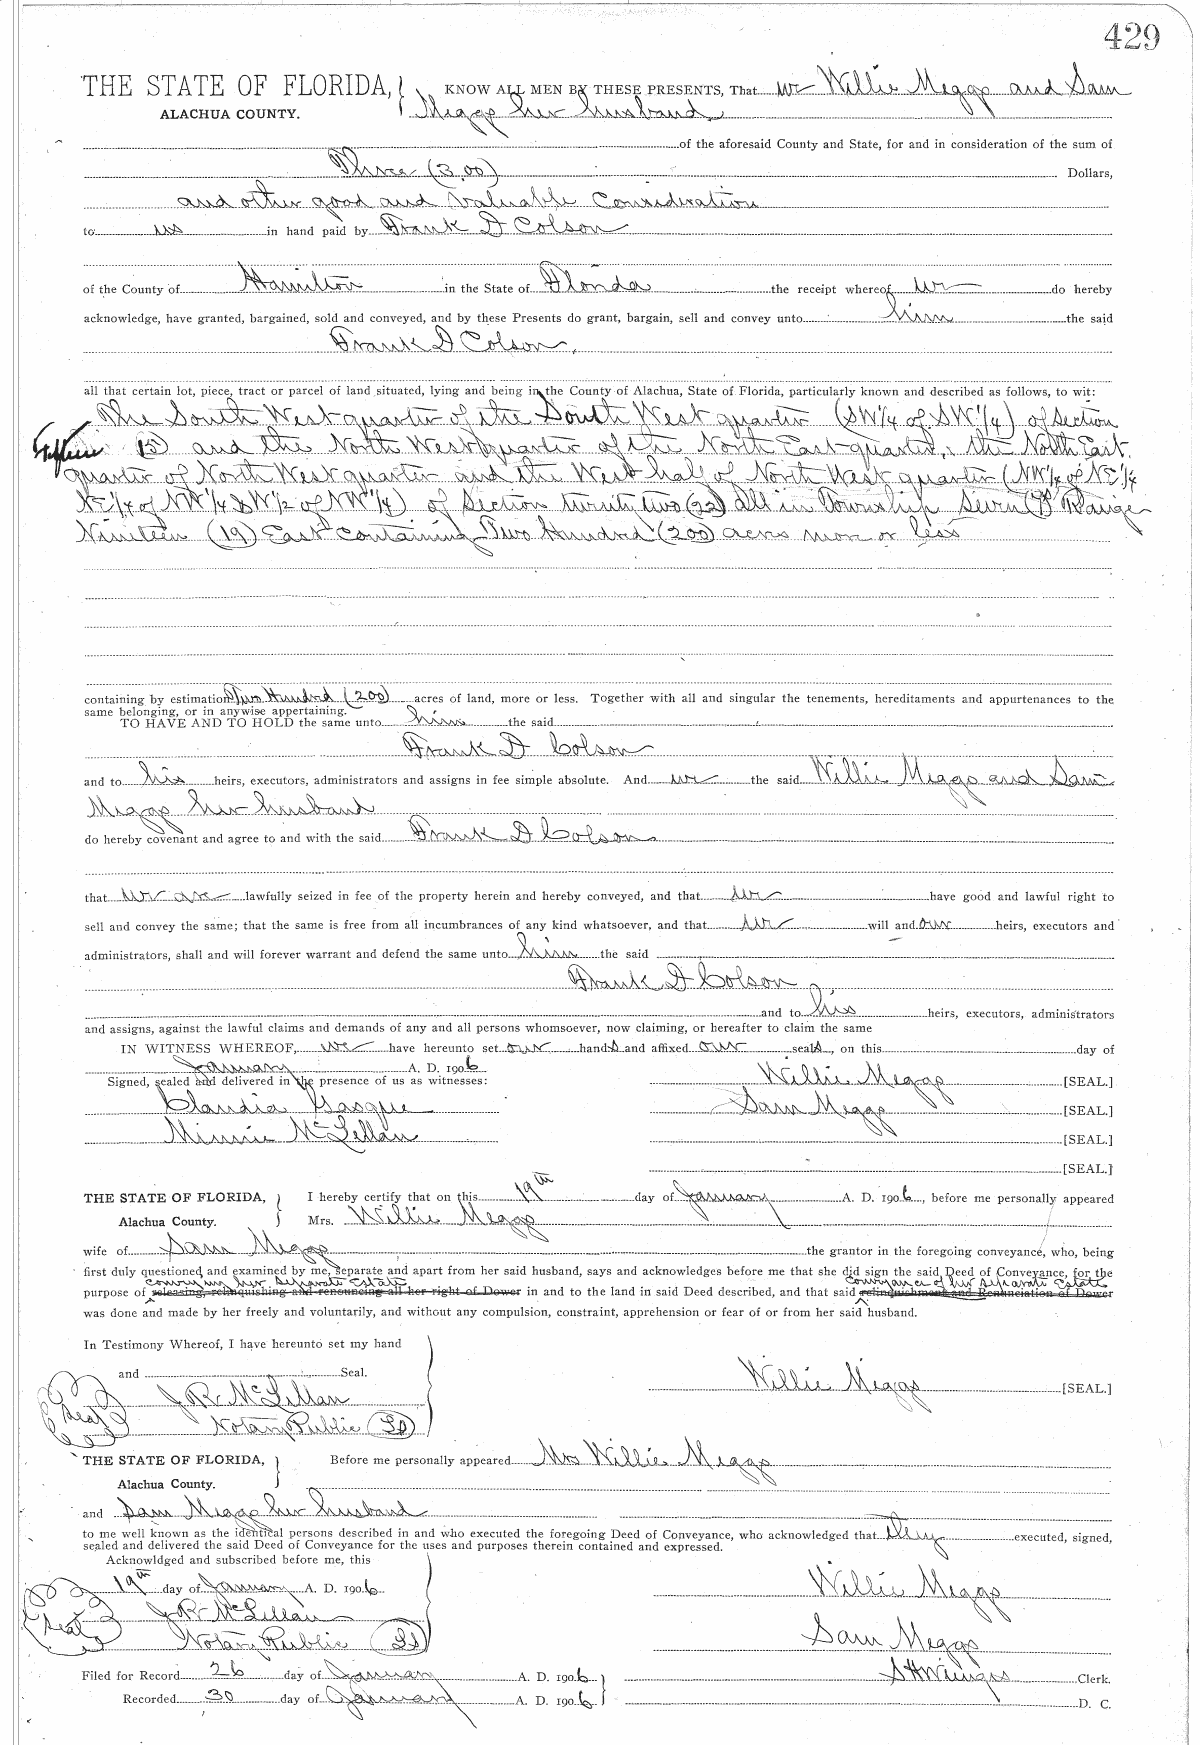 429
THE STATE OF FLORIDA, } KNOW ALL MEN BY THESE PRESENTS, That we Willie Meggs and Sam
ALACHUA COUNTY. Meggs her husband
of the aforesaid County and State, for and in consideration of the sum of
Three (3.00) Dollars,
and other good and valuable Consideration
to us in hand paid by Frank D Colson
of the County of Hamilton in the State of Florida the receipt whereof we do hereby
acknowledge, have granted, bargained, sold and conveyed, and by these Presents do grant, bargain, sell and convey unto him the said
Frank D Colson,
all that certain lot, piece, tract or parcel of land situated, lying and being in the County of Alachua, State of Florida, particularly known and described as follows, to wit:
The South West quarter of the South West quarter (SW1/4 of SW1/4) of Section
Fifteen (15) and the North West quarter of the North East quarter, the North East
quarter of North West quarter and the West half of North West quarter (NW1/4 of NE1/4
NE1/4 of NW1/4 & W1/2 of NW1/4) of Section twenty two (22) all in Township Seven (7) Range
Nineteen (19) East containing Two Hundred (200) acres more or less
containing by estimation Two Hundred (200) acres of land, more or less. Together with all and singular the tenements, hereditaments and appurtenances to the
same belonging, or in anywise appertaining.
TO HAVE AND TO HOLD the same unto him the said
Frank D Colson
and to his heirs, executors, administrators and assigns in fee simple absolute. And we the said Willie Meggs and Sam
Meggs her husband
do hereby covenant and agree to and with the said Frank D Colson
that we are lawfully seized in fee of the property herein and hereby conveyed, and that we have good and lawful right to
sell and convey the same; that the same is free from all incumbrances of any kind whatsoever, and that we will and our heirs, executors and
administrators, shall and will forever warrant and defend the same unto him the said
Frank D Colson
and to his heirs, executors, administrators
and assigns, against the lawful claims and demands of any and all persons whomsoever, now claiming, or hereafter to claim the same
IN WITNESS WHEREOF, we have hereunto set our hands and affixed our seals, on this day of
January A. D. 1906
Signed, sealed and delivered in the presence of us as witnesses: Willie Meggs [SEAL.]
Claudia Gasque Sam Meggs [SEAL.]
Minnie McLellan [SEAL.]
[SEAL.]
THE STATE OF FLORIDA, } I hereby certify that on this 19th day of January A. D. 1906, before me personally appeared
Alachua County. Mrs. Willie Meggs
wife of Sam Meggs the grantor in the foregoing conveyance, who, being
first duly questioned and examined by me, separate and apart from her said husband, says and acknowledges before me that she did sign the said Deed of Conveyance, for the
conveying her separate Estate Conveyance of her separate Estate
purpose of releasing, relinquishing and renouncing all her right of Dower in and to the land in said Deed described, and that said relinquishment and Renunciation of Dower
was done and made by her freely and voluntarily, and without any compulsion, constraint, apprehension or fear of or from her said husband.
In Testimony Whereof, I have hereunto set my hand
and Seal. Willie Meggs [SEAL.]
Seal J R McLellan
Notary Public LS
THE STATE OF FLORIDA, } Before me personally appeared Mrs Willie Meggs
Alachua County.
and Sam Meggs her husband
to me well known as the identical persons described in and who executed the foregoing Deed of Conveyance, who acknowledged that they executed, signed,
sealed and delivered the said Deed of Conveyance for the uses and purposes therein contained and expressed.
Acknowldged and subscribed before me, this
19th day of January A. D. 1906. Willie Meggs
Seal J R McLellan
Notary Public LS Sam Meggs
Filed for Record 26 day of January A. D. 1906 Clerk.
Recorded 30 day of January A. D. 1906 D. C.